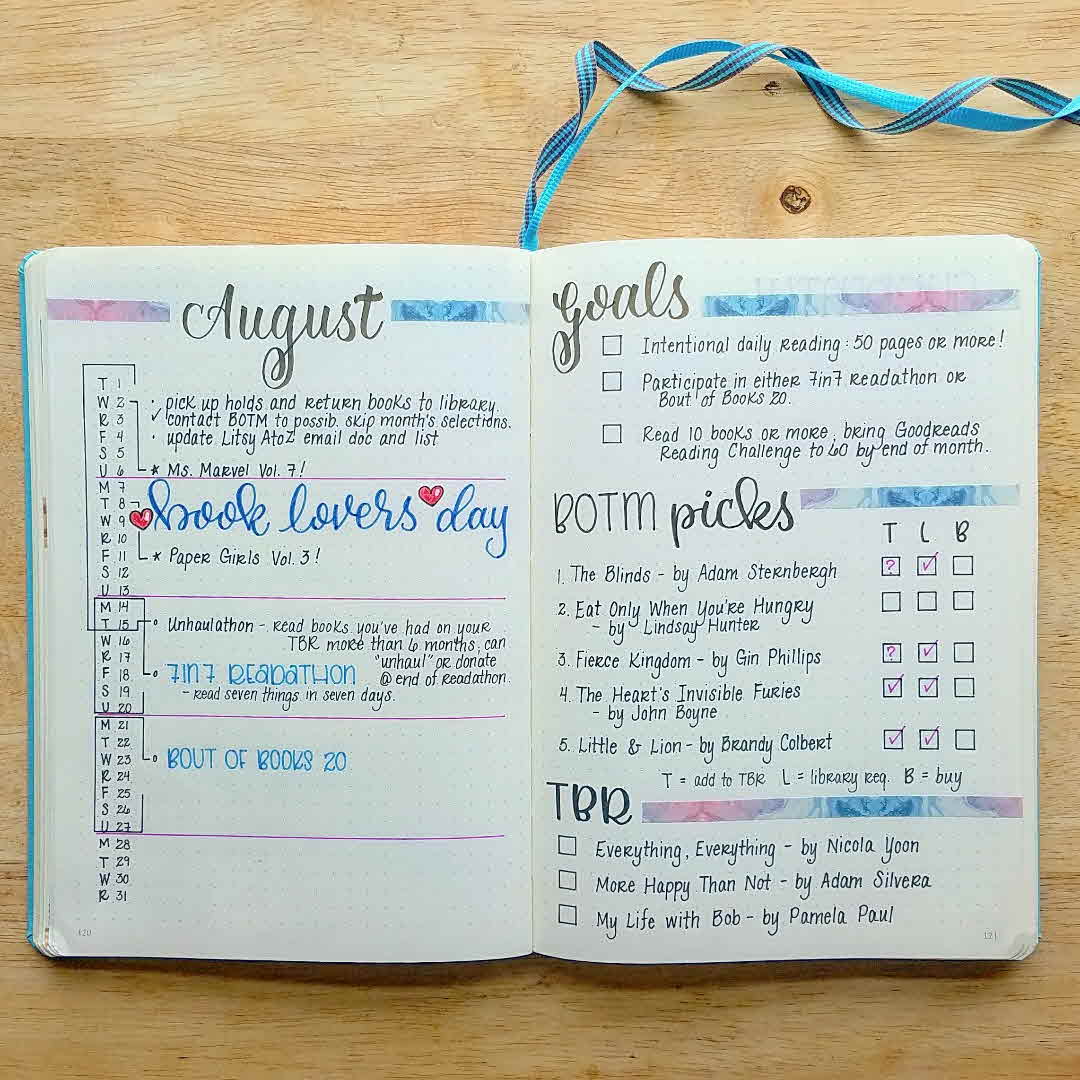 August
T 1
W 2
R 3
F 4
S 5
U 6
M 7
T 8
W 9
R 10
F 11
S 12
U 13
M 14
T 15
W 16
R 17
F 18
S 19
U 20
M 21
T 22
W 23
R 24
F 25
S 26
U 27
M 28
T 29
W 30
R 31
· pick up holds and return books to library.
✓ contact BOTM to possib. skip month's selections.
· update Litsy AtoZ email doc and list
* Ms. Marvel Vol. 7!
book lovers day
* Paper Girls Vol. 3!
Unhaulathon - read books you've had on your
TBR more than 6 months, can
"unhaul" or donate
@ end of readathon.
7IN7 READATHON
- read seven things in seven days.
BOUT OF BOOKS 20
120
Goals
Intentional daily reading: 50 pages or more!
Participate in either 7in7 readathon or
Bout of Books 20.
Read 10 books or more, bring Goodreads
Reading Challenge to 60 by end of month.
BOTM picks
T L B
1. The Blinds - by Adam Sternbergh ? ✓
2. Eat Only When You're Hungry
- by Lindsay Hunter
3. Fierce Kingdom - by Gin Phillips ? ✓
4. The Heart's Invisible Furies ✓ ✓
- by John Boyne
5. Little & Lion - by Brandy Colbert ✓ ✓
T = add to TBR L = library req. B = buy
TBR
Everything, Everything - by Nicola Yoon
More Happy Than Not - by Adam Silvera
My Life with Bob - by Pamela Paul
121